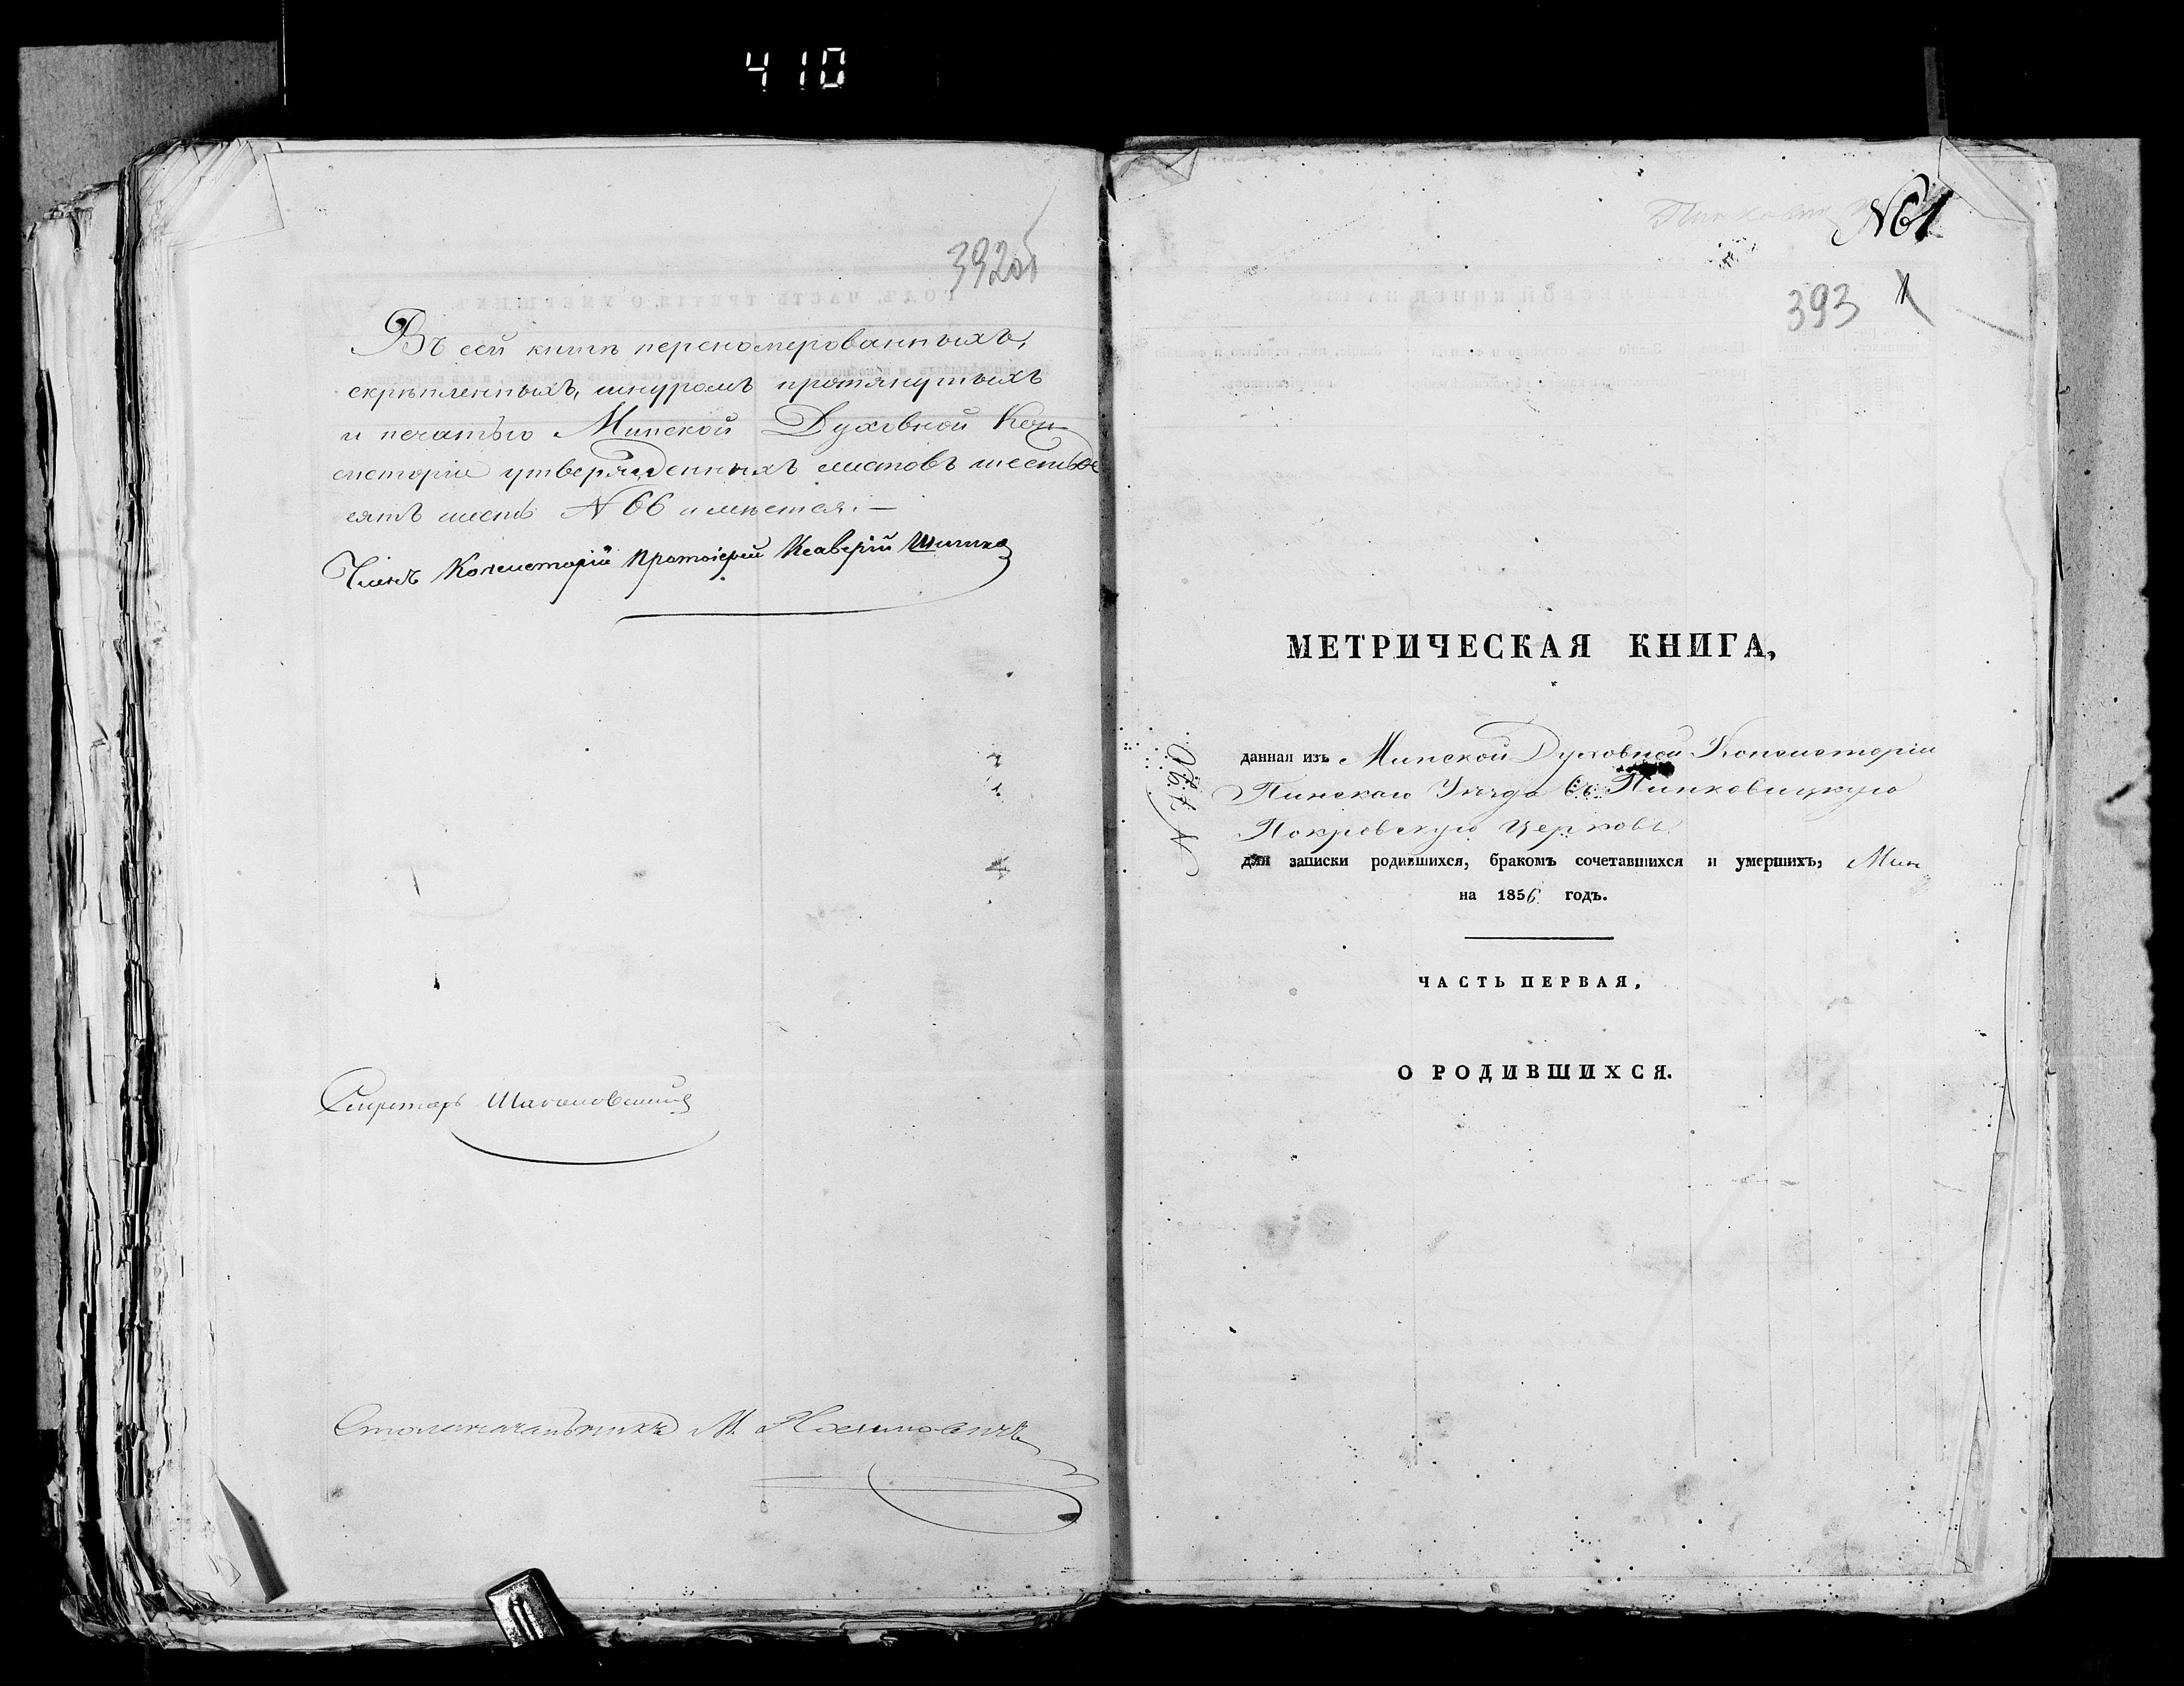 410
392об
Въ сей книгѣ переномерованныхъ,
скрѣпленныхъ, шнуромъ протянутыхъ
и печатью Минской Духовной Кон-
систоріи утвержденныхъ листовъ шестьде
сятъ шесть N 66 имѣется. —
Членъ Консисторіи Протоіерей Ксаверій
Секретарь
Столоначальникъ М.
N61
393
1
МЕТРИЧЕСКАЯ КНИГА,
данная изъ Минской Духовной Консисторіи
Пинскаго Уѣзда въ Пинковицкую
Покровскую Церковь
для записки родившихся, бракомъ сочетавшихся и умершихъ, Мин
на 1856 годъ.
ЧАСТЬ ПЕРВАЯ,
О РОДИВШИХСЯ.